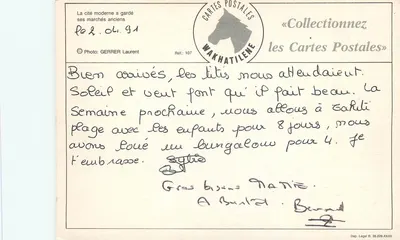 La cité moderne a gardé
ses marchés anciens
le 2.04.91
© Photo: GERRER Laurent
Réf.: 107
CARTES POSTALES
WAKHATILENE
«Collectionnez
les Cartes Postales»
Bien arrivés, les titis nous attendaient.
Soleil et vent font qu'il fait beau. La
Semaine prochaine, nous allons à Tahiti
plage avec les enfants pour 8 jours, nous
avons loué un bungalow pour 4. Je
t'embrasse. Sylvie
Gros bisous
A Bientôt.